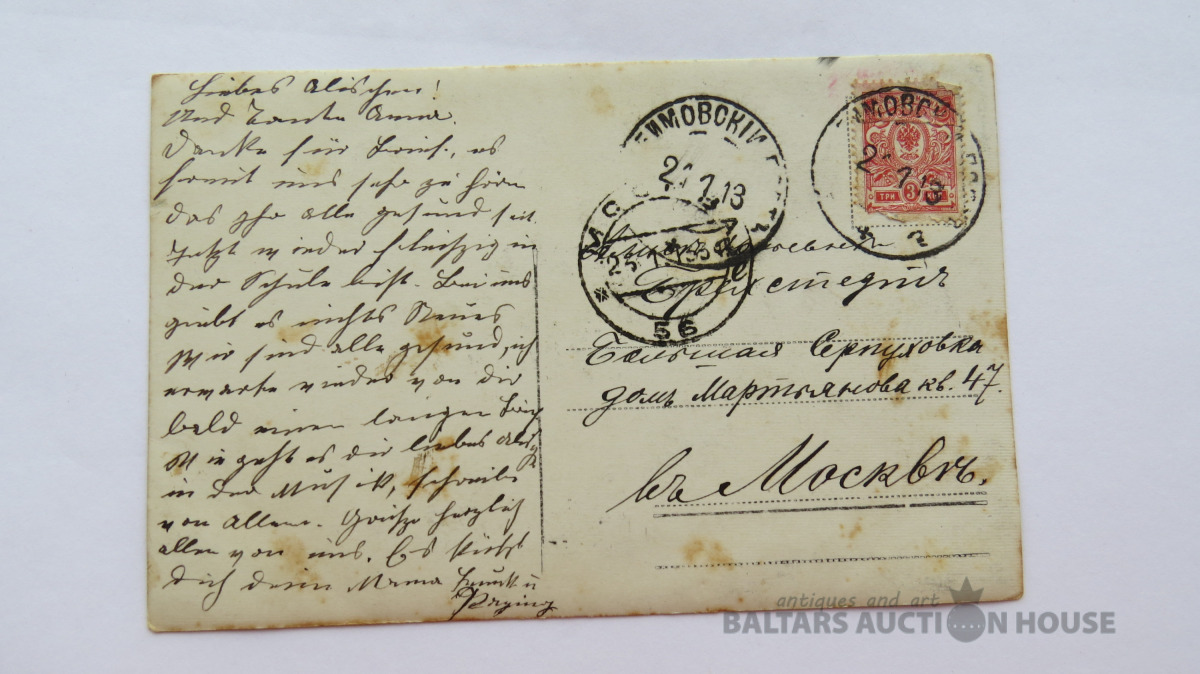 Liebes Alischen!
Und Tante Anna.
Danke für Brief, es
freut uns sehr zu hören
das Ihr alle gesund seit.
Jetzt wieder fleißig in
der Schule bist. Bei uns
giebt es nichts Neues
Wir sind alle gesund, ich
erwarte wieder von dir
bald einen langen Brief
Wie geht es dir liebes
in der Musik, schreibe
von allem. Grüße herzlich
allen von uns. Es küßt
dich deine Mama
ИМОВСКІЙ
1 13
МОС
25
56
ИМОВСК
1 13
ТРИ 3 КОП
Большая Серпуховка
домъ Мартьянова кв. 47.
въ Москвѣ.
antiques and art
BALTARS AUCTION HOUSE